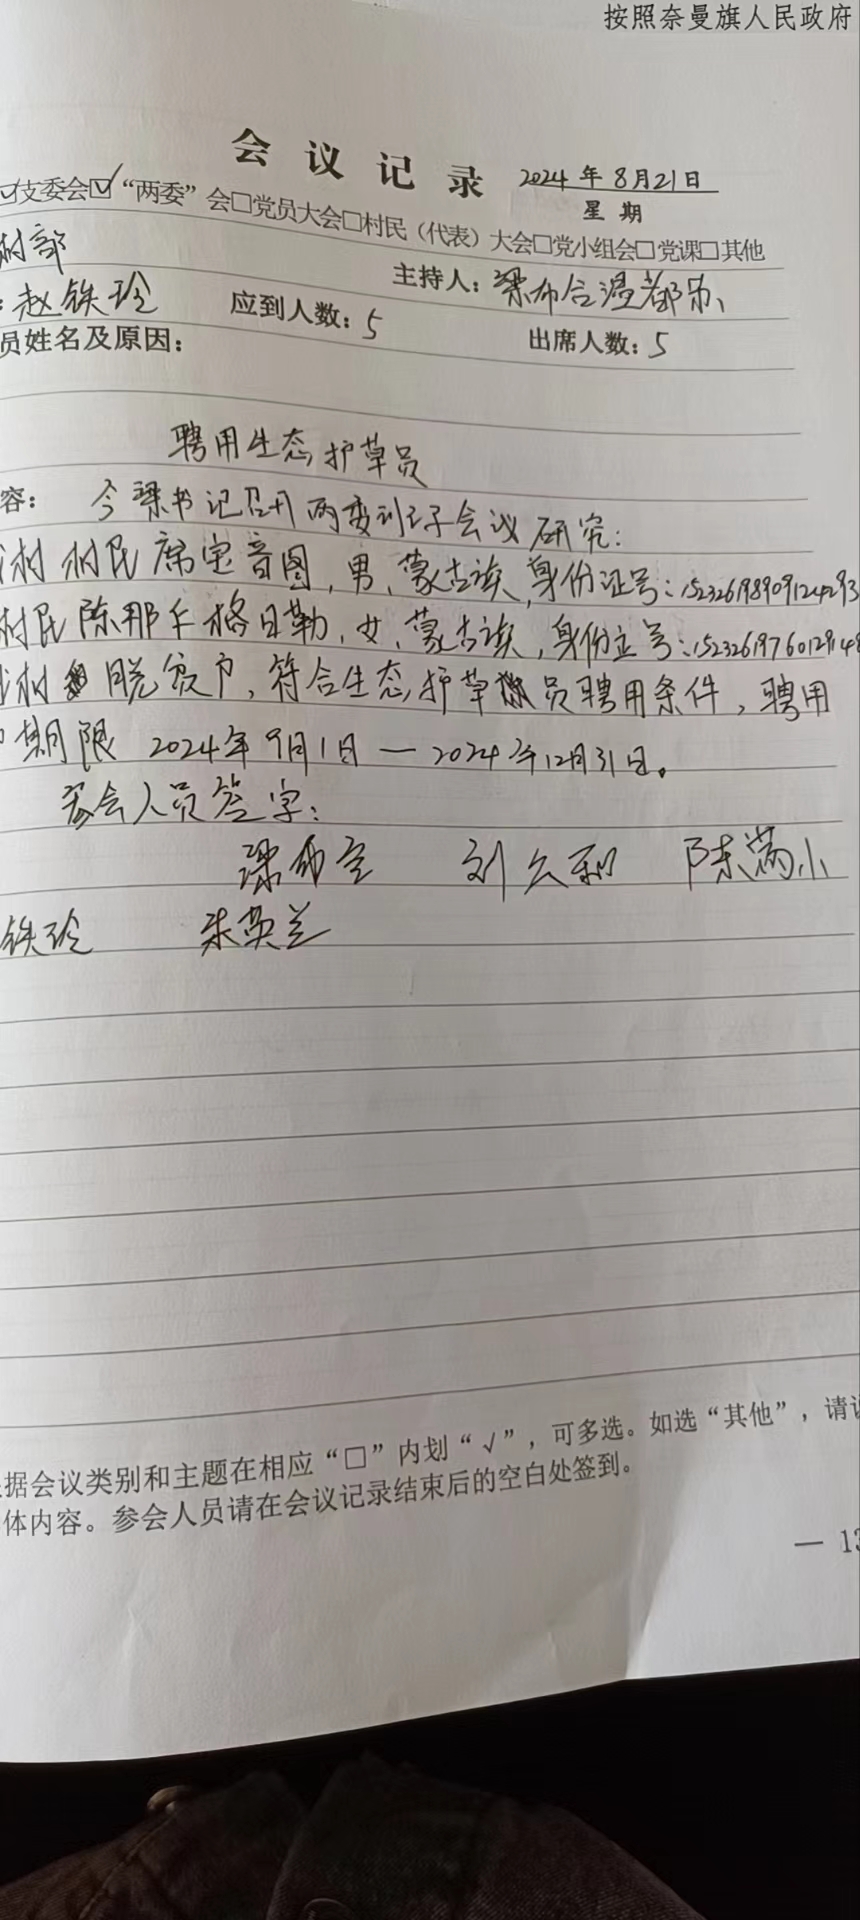 按照奈曼旗人民政府
会议记录 2024年8月21日
星期
☑支委会☑“两委”会□党员大会□村民（代表）大会□党小组会□党课□其他
村部
主持人：梁布合温都苏
：赵铁玲 应到人数：5 出席人数：5
员姓名及原因：
聘用生态护草员
容： 今梁书记召开两委班子会议研究：
村村民席宝音图，男，蒙古族，身份证号：152326198909124293
村民陈那仁格日勒，女，蒙古族，身份证号：15232619760129148
村 脱贫户，符合生态护草员聘用条件，聘用
期限 2024年9月1日—2024年12月31日。
参会人员签字：
梁布仓 刘公和 陈满小
铁玲 朱英兰
据会议类别和主题在相应“□”内划“√”，可多选。如选“其他”，请
体内容。参会人员请在会议记录结束后的空白处签到。
— 13